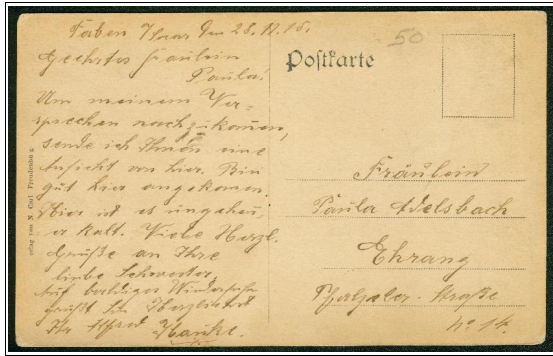 Taben / Saar den 28.12.15.
Geehrtes Fräulein
Paula!
Um meinem Ver-
sprechen nachzukommen,
sende ich Ihnen eine
Ansicht von hier. Bin
gut hier angekomen.
Hier ist es ungeheu-
er kalt. Viele Herzl.
Grüße an Ihre
liebe Schwester,
Auf baldiges Wiedersehn
grüßt Sie Herzlichst
Ihr Alfred
50
Postkarte
Fräulein
Paula Adelsbach
Ehrang
Straße
No. 14.
Verlag von N. Carl Freudenberg